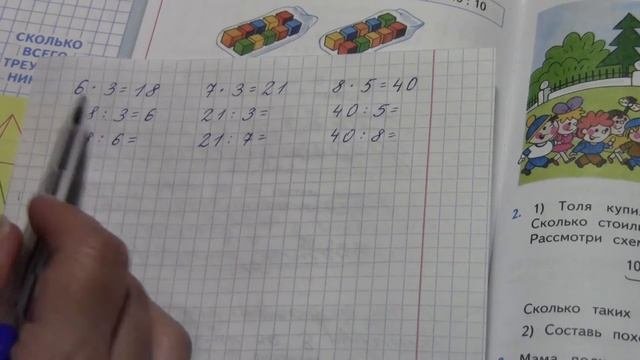 СКОЛЬКО
ВСЕГО
ТРЕУ
НИК
: 10
6 · 3 = 18 7 · 3 = 21 8 · 5 = 40
8 : 3 = 6 21 : 3 = 40 : 5 =
8 : 6 = 21 : 7 = 40 : 8 =
2. 1) Толя купи
Сколько стоили
Рассмотри схем
10
Сколько таких
2) Составь похо
Мама